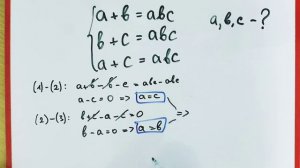 a+b = abc
b+c = abc
a+c = abc
a,b,c - ?
(1)-(2): a+b-b-c = abc-abc
a-c=0 => a=c
(2)-(3): b+c-a-c=0
b-a=0 => a=b
=>